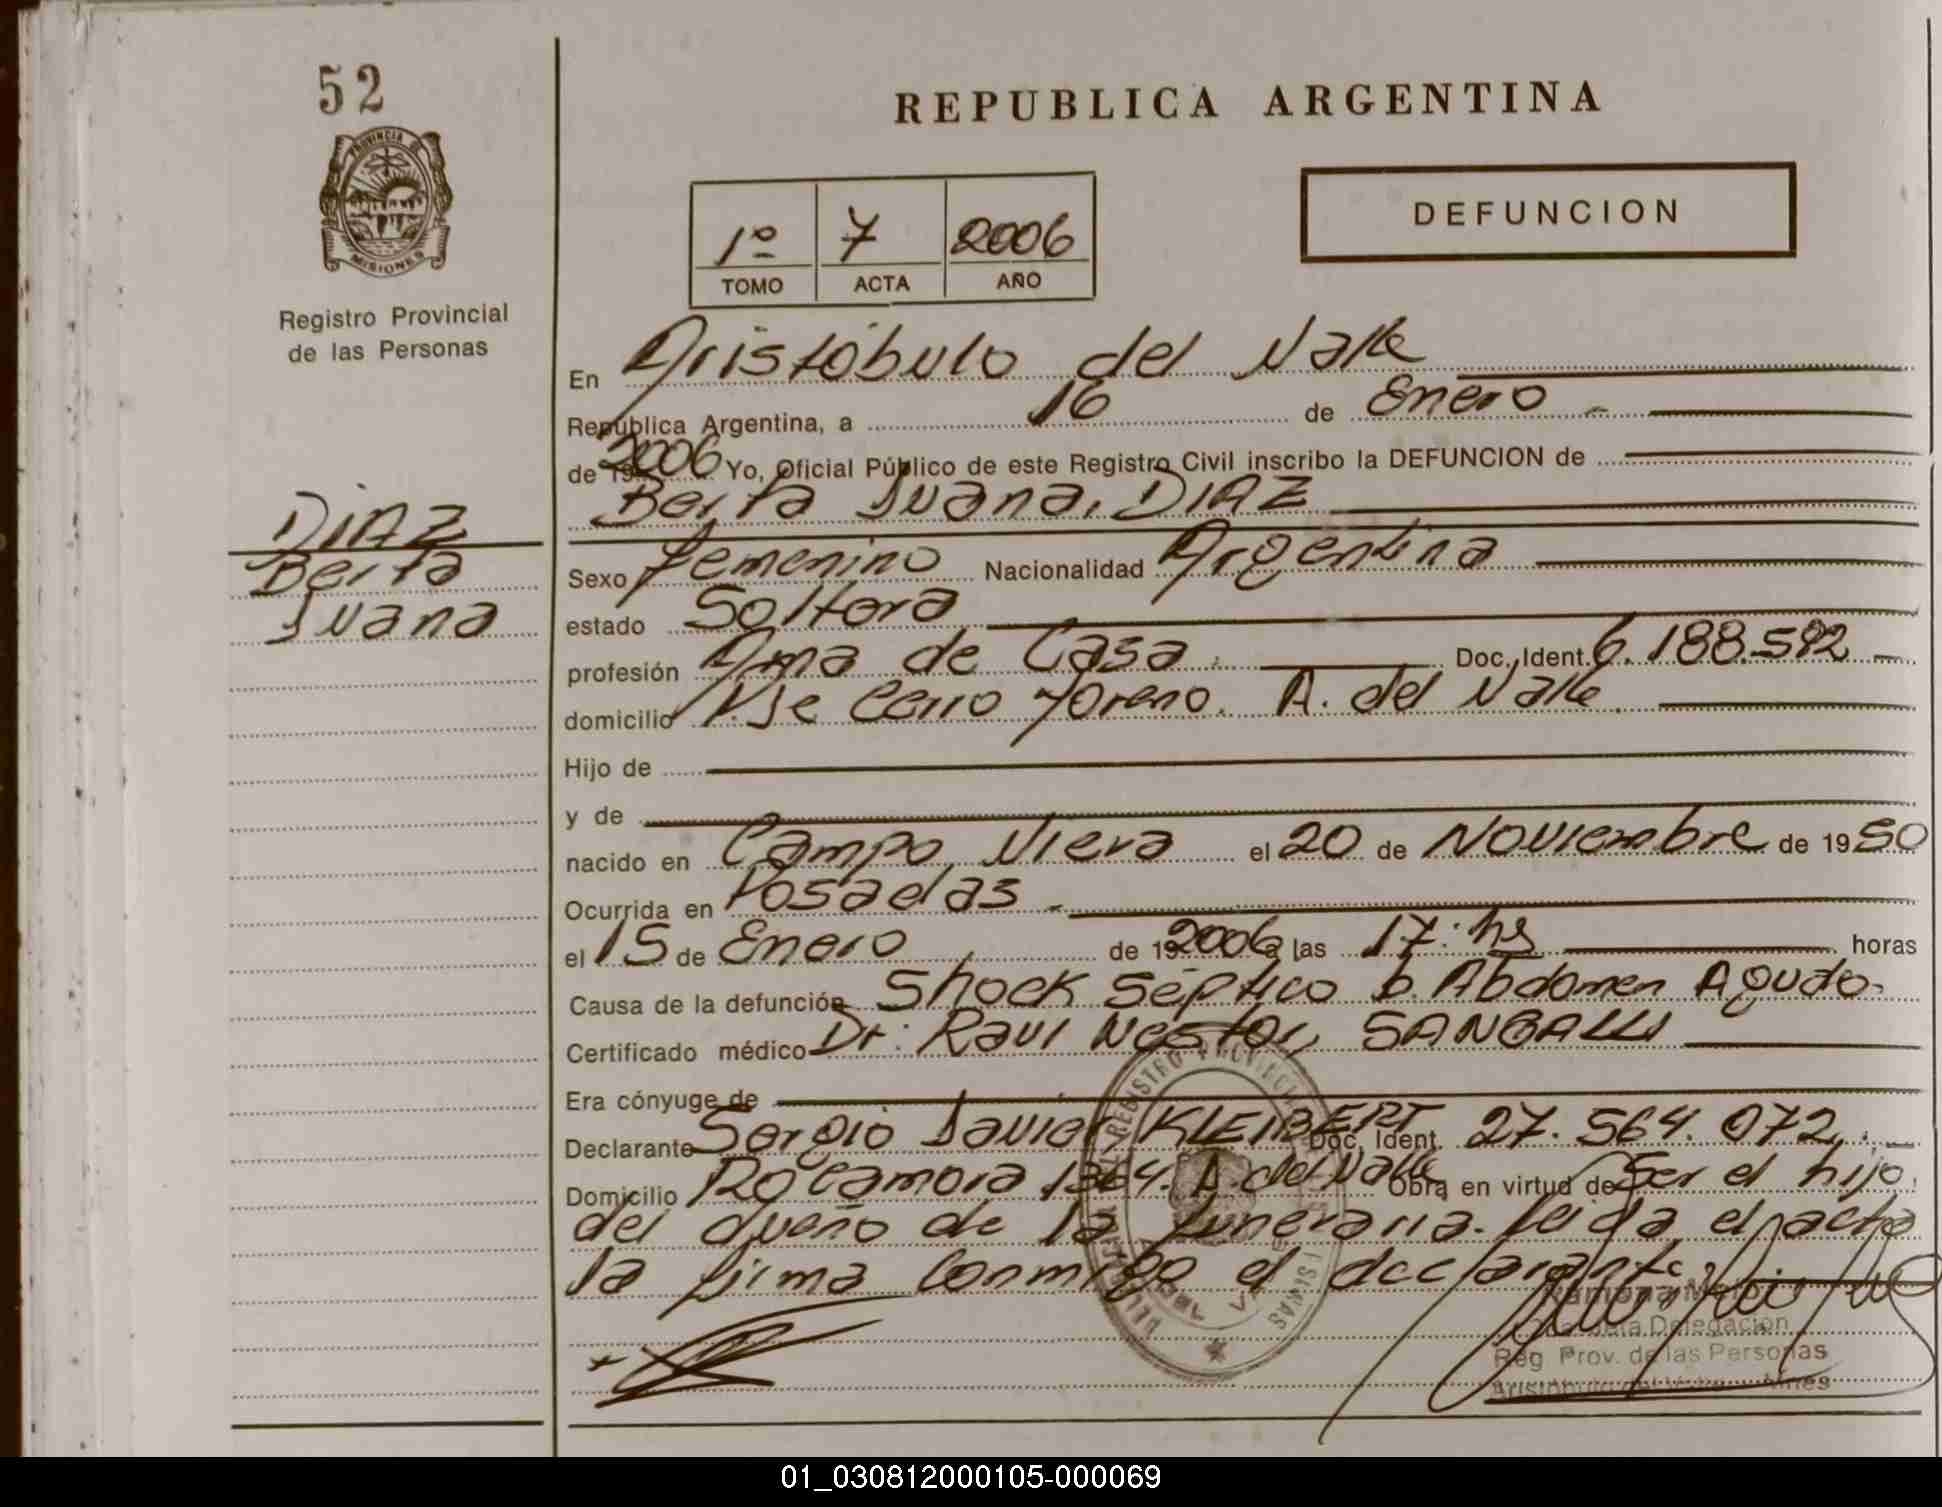 52
PROVINCIA DE
MISIONES
Registro Provincial
de las Personas
DIAZ
Berta
Juana
REPUBLICA ARGENTINA
1º 7 2006
TOMO ACTA AÑO
DEFUNCION
En Aristóbulo del Valle
República Argentina, a 16 de Enero
de 2006 Yo, Oficial Público de este Registro Civil inscribo la DEFUNCION de
Berta Juana, DIAZ
Sexo femenino Nacionalidad Argentina
estado Soltera
profesión Ama de Casa Doc. Ident. 6.188.592
domicilio Cerro Moreno. A. del Valle
Hijo de
y de
nacido en Campo Viera el 20 de Noviembre de 1950
Ocurrida en Posadas
el 15 de Enero de 2006 a las 17: hs horas
Causa de la defunción Shock Séptico p. Abdomen Agudo
Certificado médico Dr: Raul Nestor, SANGALLI
Era cónyuge de
Declarante Sergio Javier KLEIBERT Doc. Ident. 27.564.072
Domicilio Rocamora 1364. A. del Valle Obra en virtud de Ser el hijo
del dueño de la funeraria. leida el acta
la firma conmigo el declarante
Delegación
Reg Prov. de las Personas
01_030812000105-000069